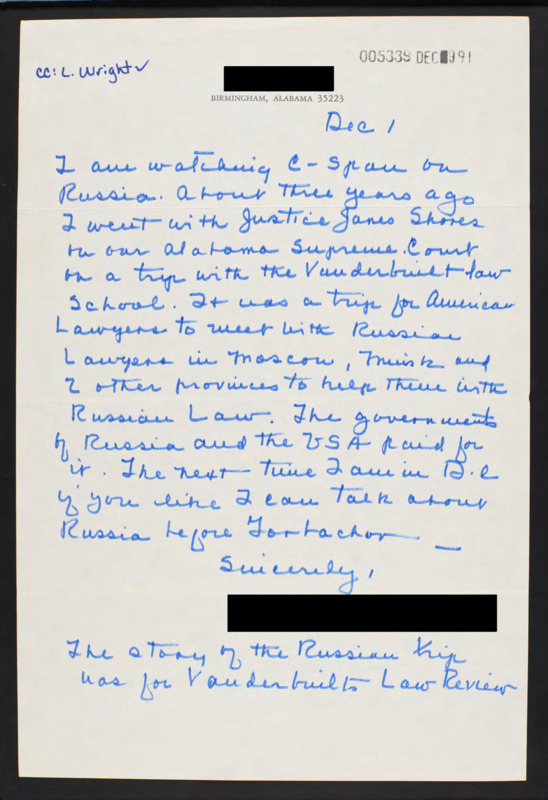 cc: L. Wright ✓
005339 DEC 991
BIRMINGHAM, ALABAMA 35223
Dec 1
I am watching C-Span on
Russia. About three years ago
I went with Justice Janes Shores
on our Alabama Supreme Court
on a trip with the Vanderbuilt law
School. It was a trip for American
Lawyers to meet with Russian
Lawyers in Moscow, Minsk and
2 other provinces to help them with
Russian Law. The governments
of Russia and the USA paid for
it. The next time I am in D.C
if you like I can talk about
Russia before Gorbachov —
Sincerely,
The story of the Russian trip
was for Vanderbuilts Law Review